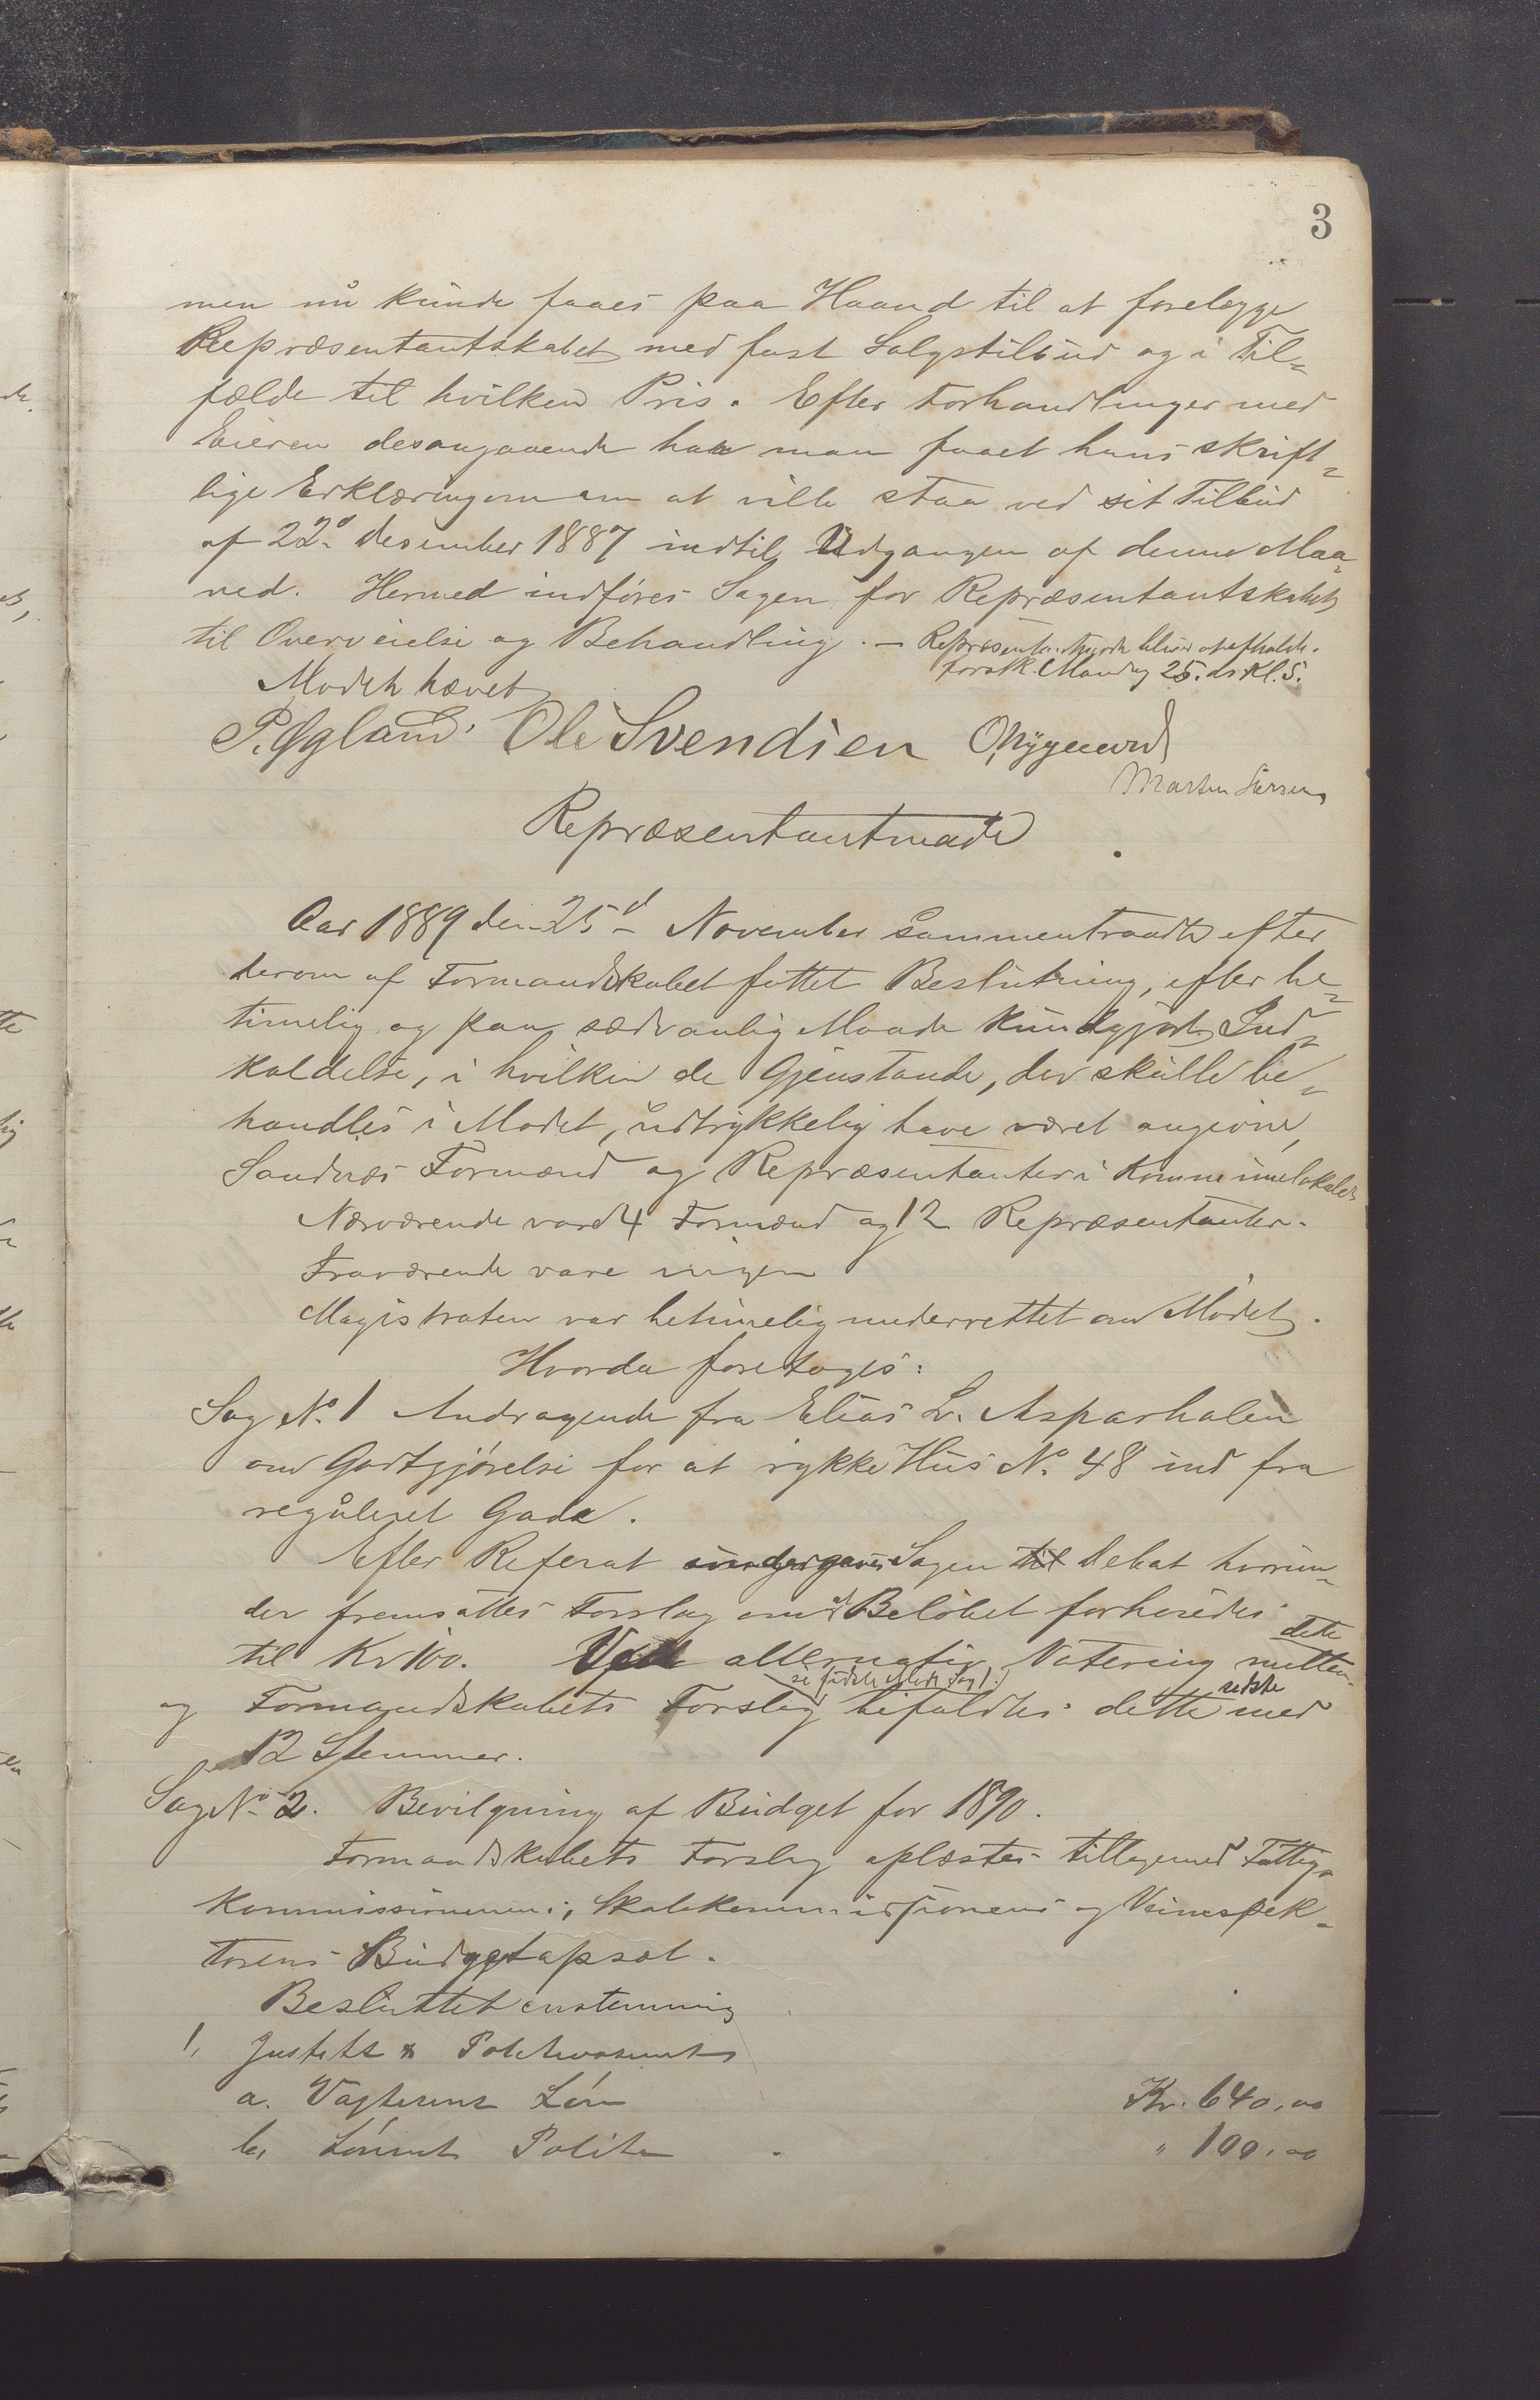 3
men nu kunde faaes paa Haand til at forelægge
Repræsentantskabet med fast Salgstilbud og i Til=
fælde til hvilken Pris. Efter Forhandlinger med
Eieren desangaaende har man faaet hans skrift=
lige Erklæring om at ville staa ved sit Tilbud
af 22d desember 1887 indtil Udgangen af denne Maa=
ned. Hermed indføres Sagen for Repræsentantskabet
til Overveielse og Behandling. — Repræsentantmøde bliver at afholde
førstk. Mandag 25. ds Kl. 5.
Mødet hævet
P. Øgland. Ole Svendsen O. Nygaard
Martin
Repræsentantmøde
Aar 1889 den 25d November sammentraadte efter
derom af Formandskabet fattet Beslutning, efter be=
timelig og paa sædvanlig Maade kundgjort Ind=
kaldelse, i hvilken de Gjenstande, der skulle be=
handles i Mødet, udtrykkelig have været angivne,
Sandnæs Formænd og Repræsentanter i Kommunelokalet
Nærværende vare 4 Formænd og 12 Repræsentanter.
Fraværende vare ingen
Magistraten var betimelig underrettet om Mødet.
Hvorda foretoges:
Sag No. 1 Andragende fra Elias L. Asparhalen
om Godtgjørelse for at rykke Hus No. 48 ind fra
reguleret Gade.
Efter Referat Sagen til Debat hvorun=
der fremsattes Forslag om at Beløbet forhøiedes
til Kr 100. Ved alternativ Votering mellem dette
og Formandskabets Forslag (se sidste Møde Sag 1.) bifaldtes dette sidste med
12 Stemmer.
Sag No. 2. Bevilgning af Budget for 1890.
Formandskabets Forslag oplæstes tilligemed Fattig=
kommissionens, Skolekommissionens og Veiinspek=
tørens Budgetopsæt.
Besluttet enstemmig
1, Justits & Politivæsenet
a. Vægterens Løn Kr. 640,00
b, Lønnet Politi " 100,00